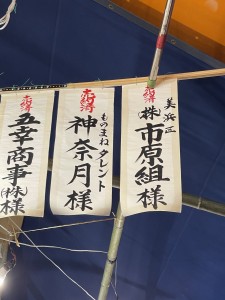 美浜区
(株)市原組様
ものまねタレント
神奈月様
五幸商事(株)様